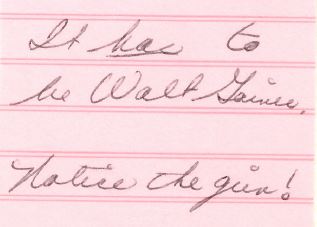 It has to
be Walt Gaines.
Notice the gun!